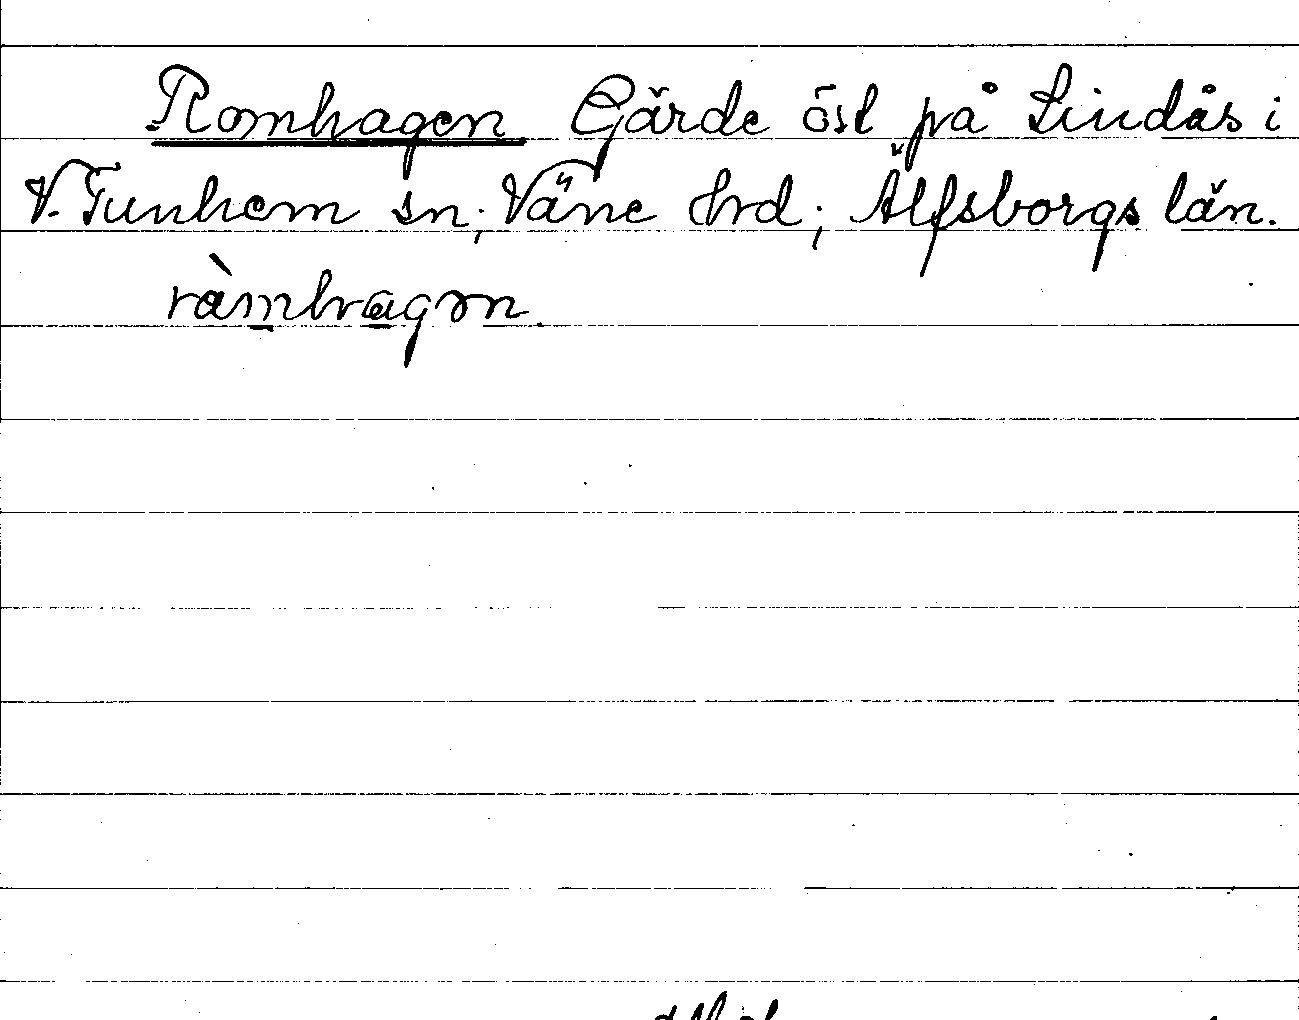 Romhagen Gärde öst på Lindås i
V. Tunhem sn; Väne hrd; Älfsborgs län.
ràmhagən.